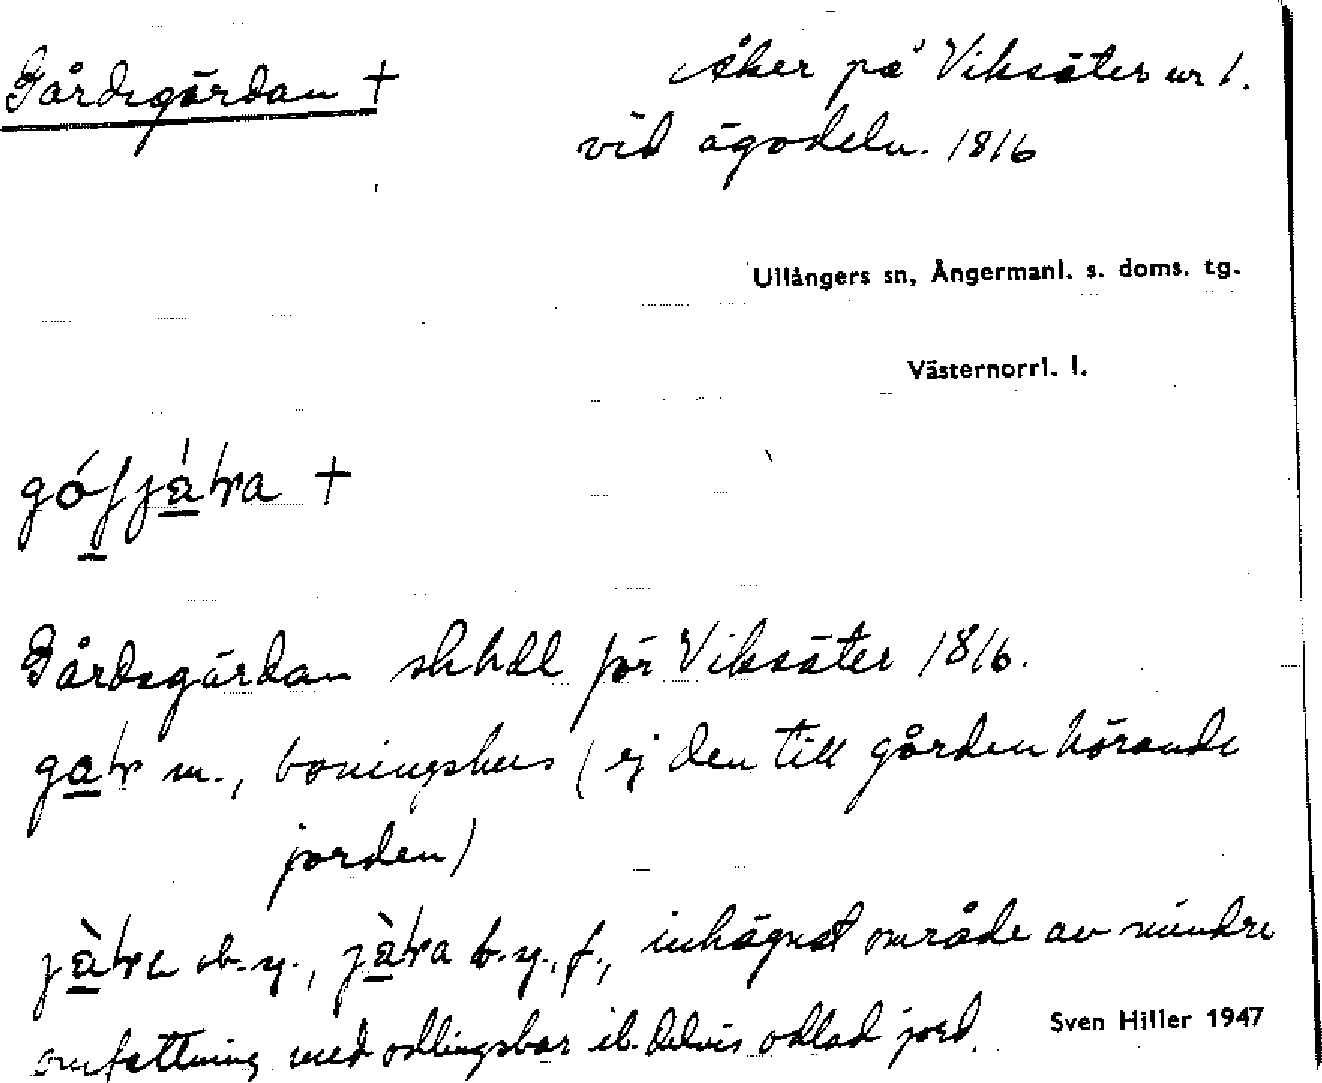 Gårdsgärdan +
Åker på Viksäter nr 1.
vid ägodeln. 1816
Ullångers sn, Ångermanl. s. doms. tg.
Västernorrl. l.
+
Gårdsgärdan skhdl för Viksäter 1816.
m., boningshus (ej den till gården hörande
jorden)
ob.y., b.y., f., inhägnat område av mindre
omfattning med odlingsbar el. delvis odlad jord.
Sven Hiller 1947